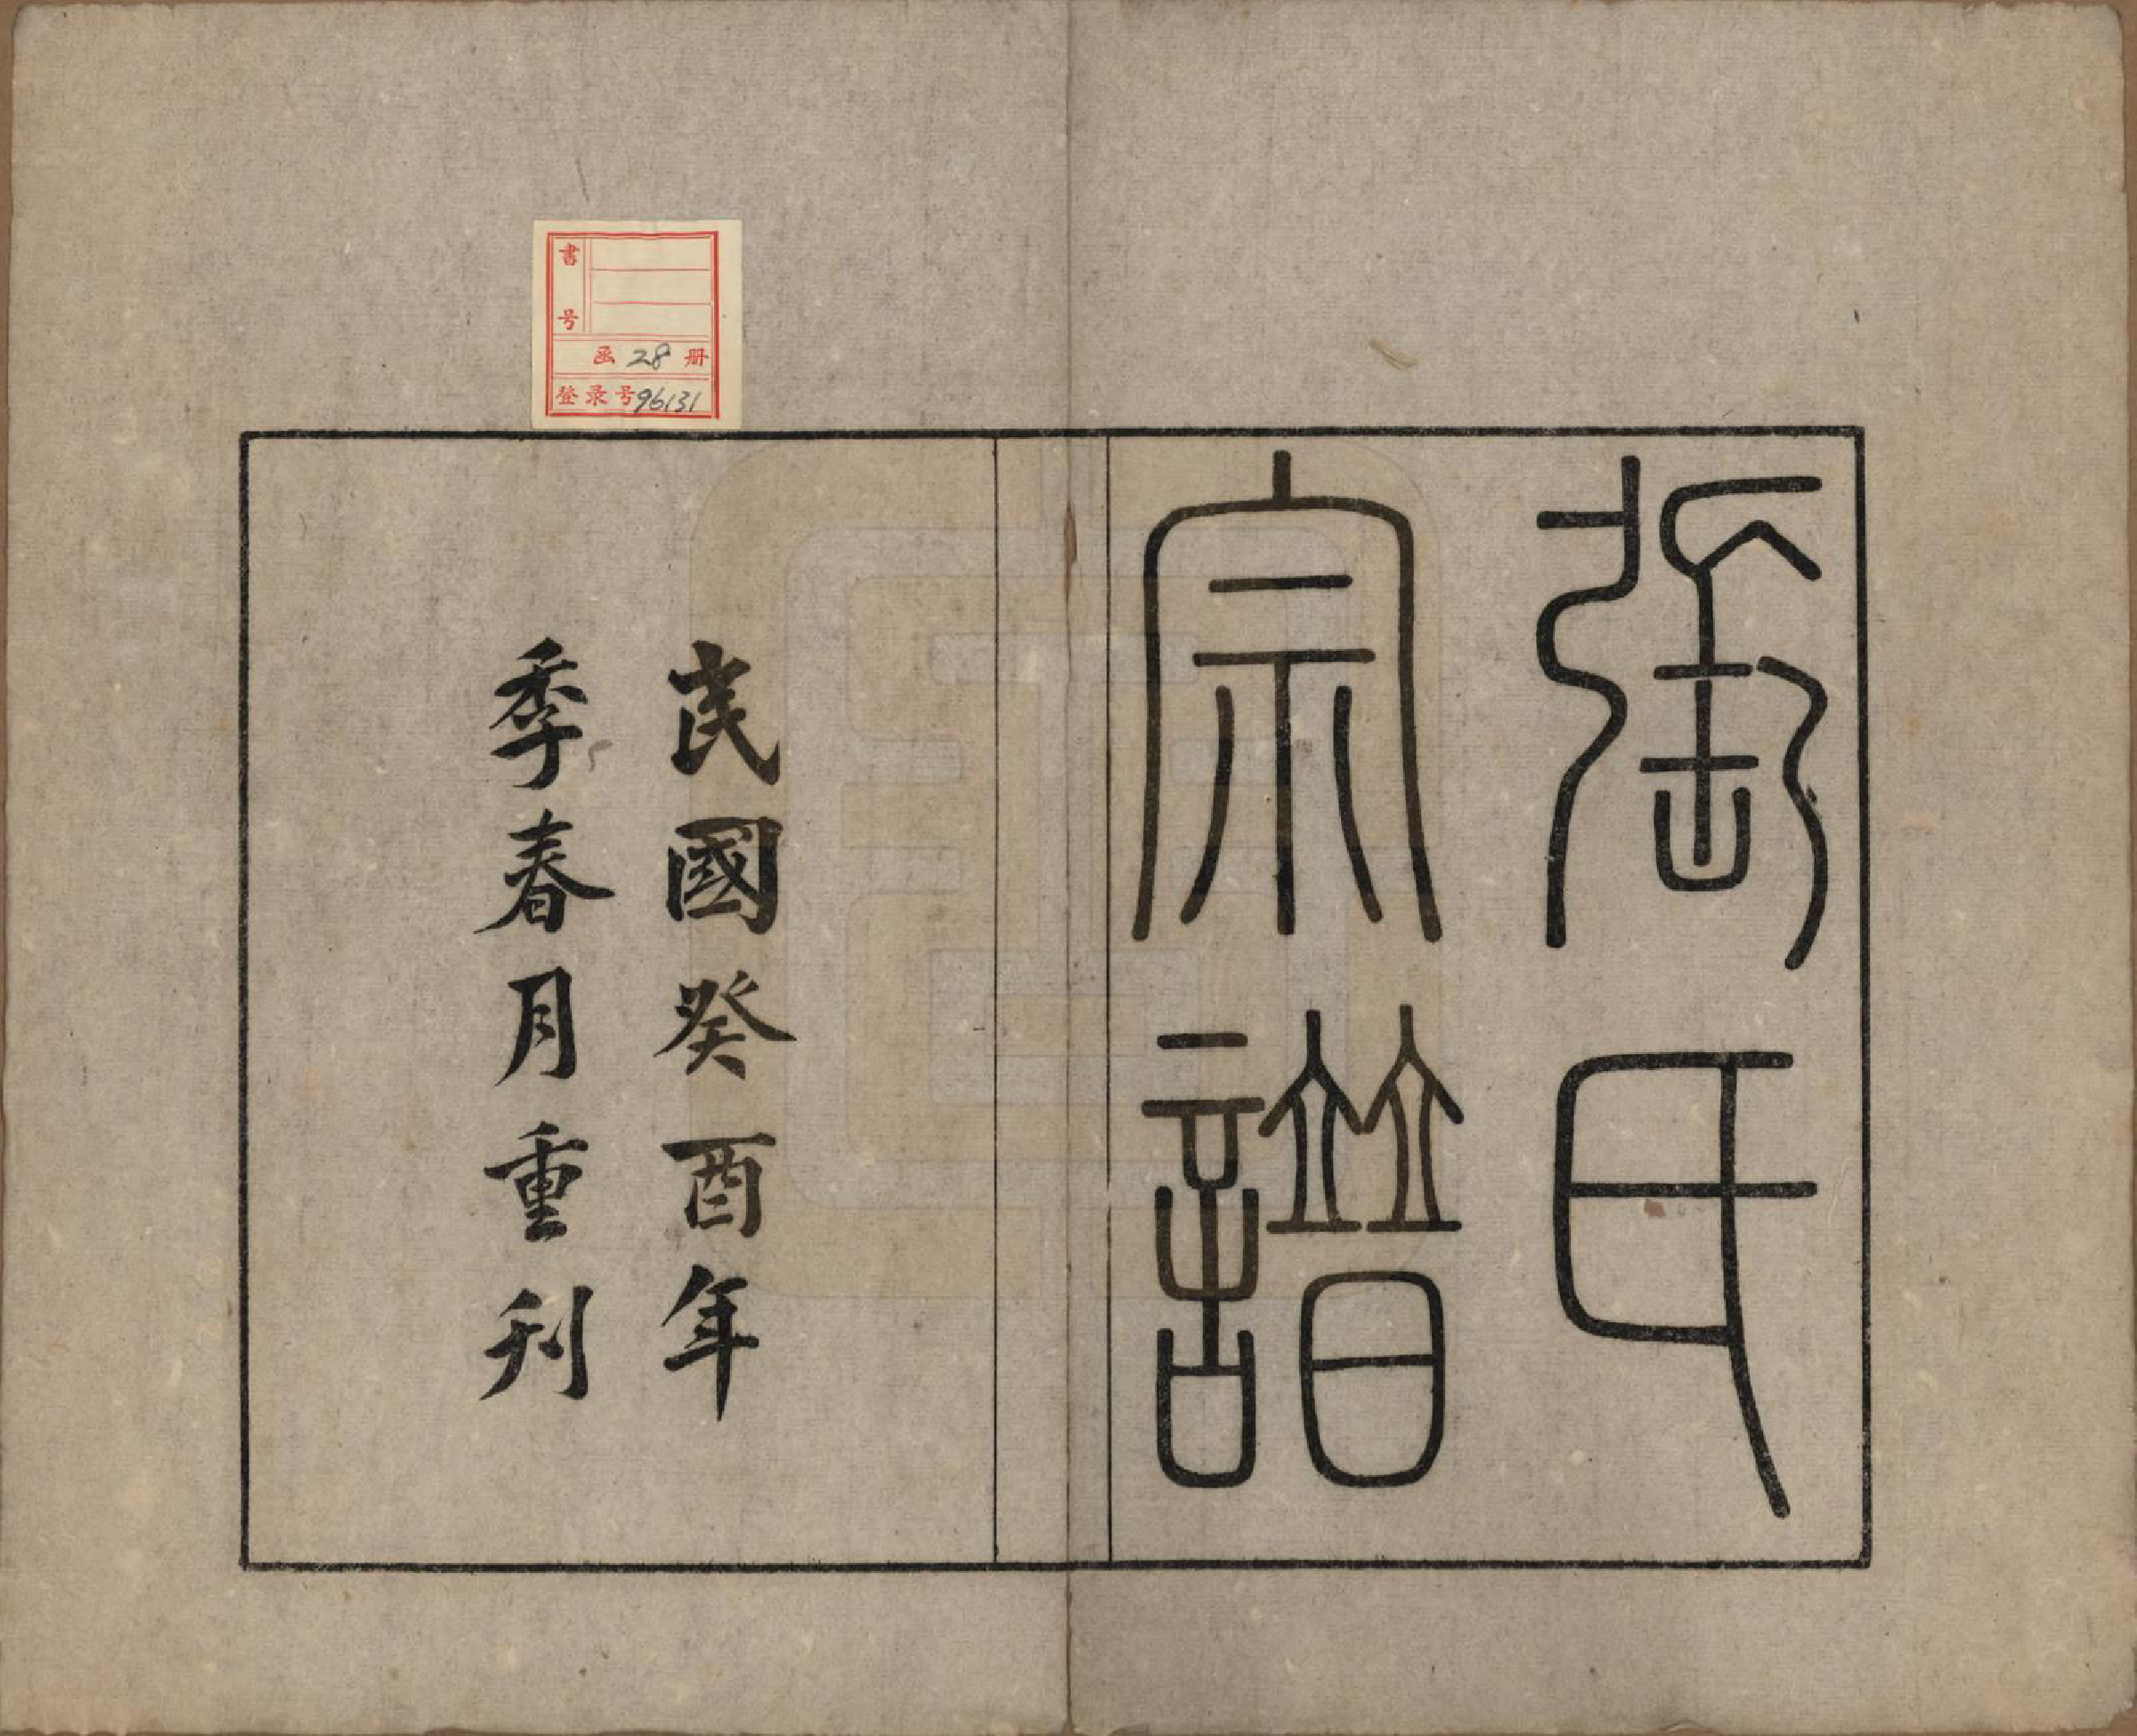 氏
宗譜
民國癸酉年
季春月重刊
書号
函 28 册
登录号 96131